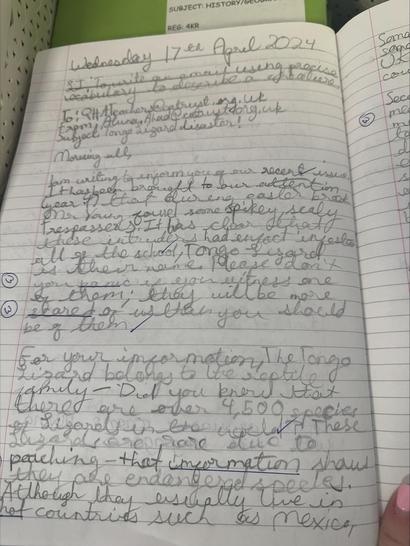 SUBJECT: HISTORY/GEOGRA
REG: 4KR
Wednesday 17th April 2024
LI: To write an email using precise
vocabulary to describe a creature.
To:
From:
Subject: Tongo Lizard disaster!
Morning all,
I am writing to inform you of our recent issue.
It has been brought to our attention
(year 4) that during easter break
Mr Young found some spikey, scaly
trespassers. It has clear that
these intruders had infact infested
all of the school, Tongo Lizard
is their name. Please don't
you panic if you witness one
of them; they will be more
scared of us than you should
be of them
For your imformation, The Tongo
Lizard belongs to the reptile
family - Did you know that
there are over 4,500 species
of Lizards in the world? These
Lizards are rare due to
poaching - that imformation shows
they are endangered species.
Although they usually live in
hot countries such as Mexico,